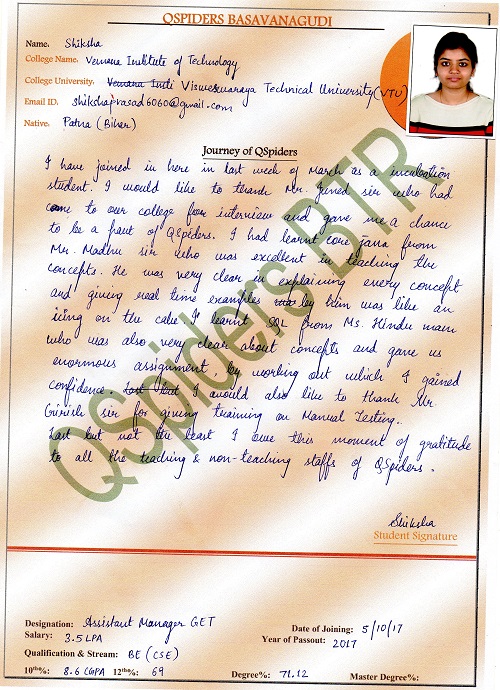 QSPIDERS BASAVANAGUDI
Name. Shiksha
College Name. Vemana Institute of Technology
College University. Vemana Insti Visweswaraya Technical University (VTU)
Email ID. shikshaprasad6060@gmail.com
Native. Patna (Bihar)
Journey of QSpiders
I have joined in here in last week of March as a incubation
student. I would like to thank Mr. sir who had
come to our college for interview and gave me a chance
to be a part of QSpiders. I had learnt core java from
Mr. Madhu sir who was excellent in teaching the
concepts. He was very clear in explaining every concept
and giving real time examples by him was like an
icing on the cake. I learnt SQL from Ms. Hindu mam
who was also very clear about concepts and gave us
enormous assignment by working out which I gained
confidence. Last but I would also like to thank Mr.
Girish sir for giving training on Manual Testing.
Last but not the least I owe this moment of gratitude
to all the teaching & non-teaching staffs of QSpiders.
QSpiders BTR
Shiksha
Student Signature
Designation: Assistant Manager GET
Date of Joining: 5/10/17
Salary: 3.5 LPA
Year of Passout: 2017
Qualification & Stream: BE (CSE)
10th%: 8.6 CGPA 12th%: 69 Degree%: 71.12 Master Degree%: